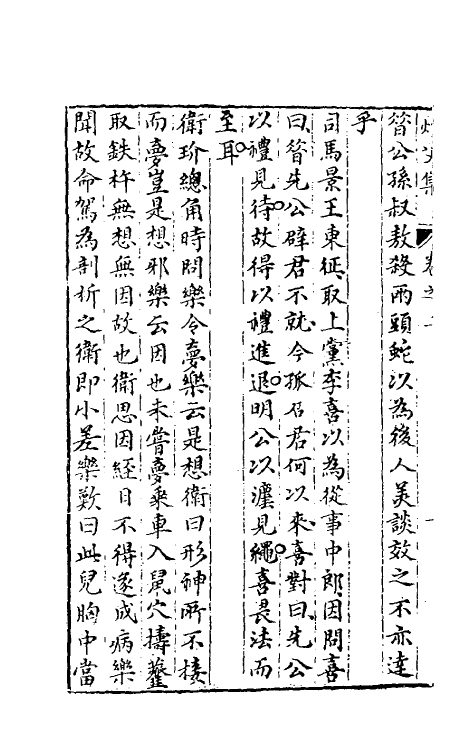 昔公孫叔敖殺兩頭蛇以為後人美談效之不亦達
乎
司馬景王東征取上黨李喜以為從事中郎因問喜
曰昔先公辟君不就今孤召君何以來喜對曰先公
以禮見待故得以禮進退明公以法見繩喜畏法而
至耳
衛玠總角時問樂令夢樂云是想衛曰形神所不接
而夢豈是想邪樂云因也未嘗夢乘車入鼠穴擣虀
取鉄杵無想無因故也衛思因經日不得遂成病樂
聞故命駕為剖析之衛即小差樂歎曰此兒胸中當